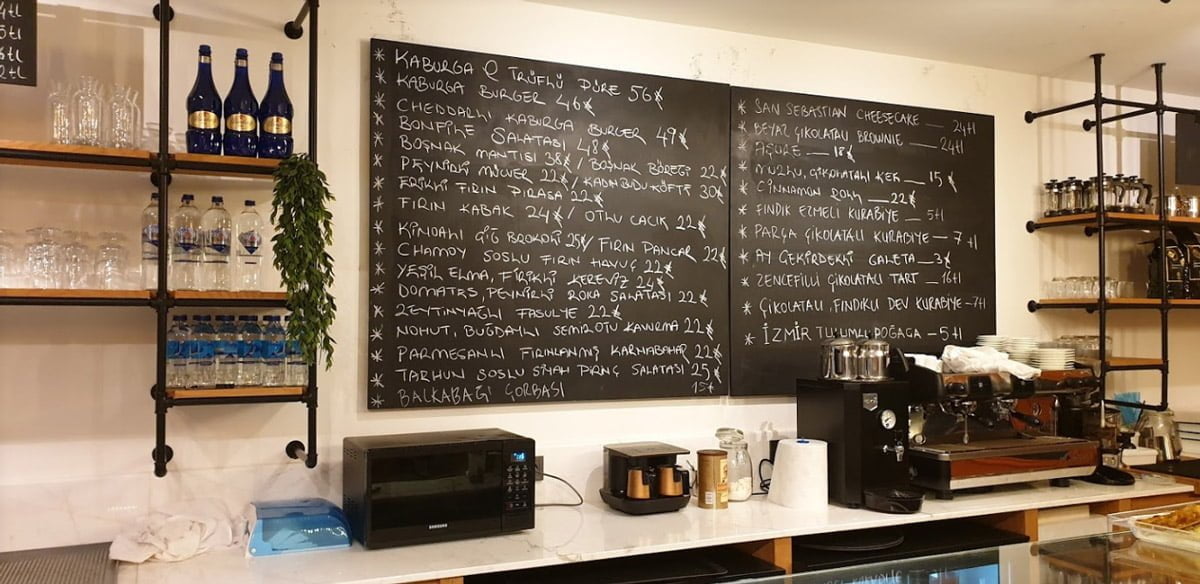 4tl
5tl
6tl
2tl
* KABURGA & TRÜFLÜ PÜRE 56₺
* KABURGA BURGER 46₺
* CHEDDARLI KABURGA BURGER 49₺
* BONFİLE SALATASI 48₺
* BOŞNAK MANTISI 38₺ / BOŞNAK BÖREĞİ 22₺
* PEYNİRLİ MÜCVER 22₺ / KADINBUDU KÖFTE 30₺
* ERİKLİ FIRIN PIRASA 22₺
* FIRIN KABAK 24₺ / OTLU CACIK 22₺
* KİNOALI ÇİĞ BROKOLİ 25₺ / FIRIN PANCAR 22₺
* CHAMOY SOSLU FIRIN HAVUÇ 22₺
* YEŞİL ELMA, FİRİKLİ KEREVİZ 24₺
* DOMATES, PEYNİRLİ ROKA SALATASI 22₺
* ZEYTİNYAĞLI FASULYE 22₺
* NOHUT, BUĞDAYLI SEMİZOTU KAVURMA 22₺
* PARMESANLI FIRINLANMIŞ KARNABAHAR 22₺
* TARHUN SOSLU SİYAH PİRİNÇ SALATASI 25₺
* BALKABAĞI ÇORBASI 15₺
* SAN SEBASTIAN CHEESECAKE — 24tl
* BEYAZ ÇİKOLATALI BROWNIE — 24tl
* AŞURE — 18₺
* MUZLU, ÇİKOLATALI KEK — 15₺
* CINNAMON ROLL — 22₺
* FINDIK EZMELİ KURABİYE — 5tl
* PARÇA ÇİKOLATALI KURABİYE — 7tl
* AY ÇEKİRDEKLİ GALETA — 3₺
* ZENCEFİLLİ ÇİKOLATALI TART — 16tl
* ÇİKOLATALI, FINDIKLI DEV KURABİYE — 7tl
* İZMİR TULUMLU POĞAÇA — 5tl
SAMSUNG